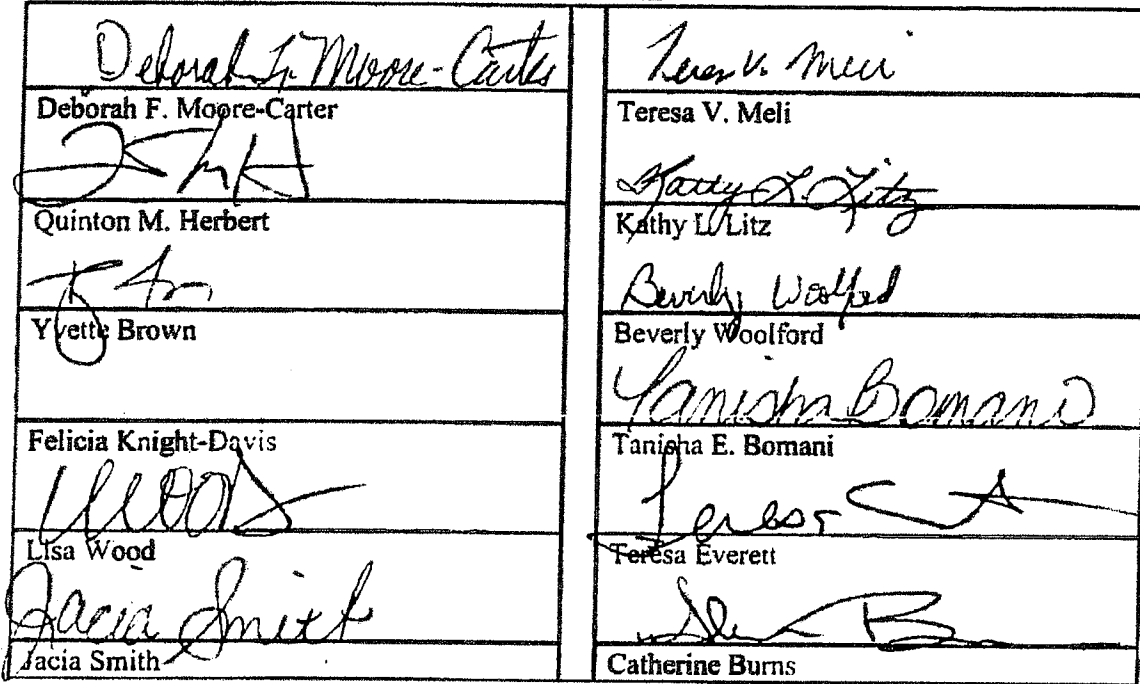 Deborah F. Moore-Carter
Deborah F. Moore-Carter
Quinton M. Herbert
Yvette Brown
Felicia Knight-Davis
Lisa Wood
Jacia Smith
Jacia Smith
Teresa V. Meli
Teresa V. Meli
Kathy L. Litz
Kathy L. Litz
Beverly Woolford
Beverly Woolford
Tanisha Bomani
Tanisha E. Bomani
Teresa
Teresa Everett
Catherine Burns